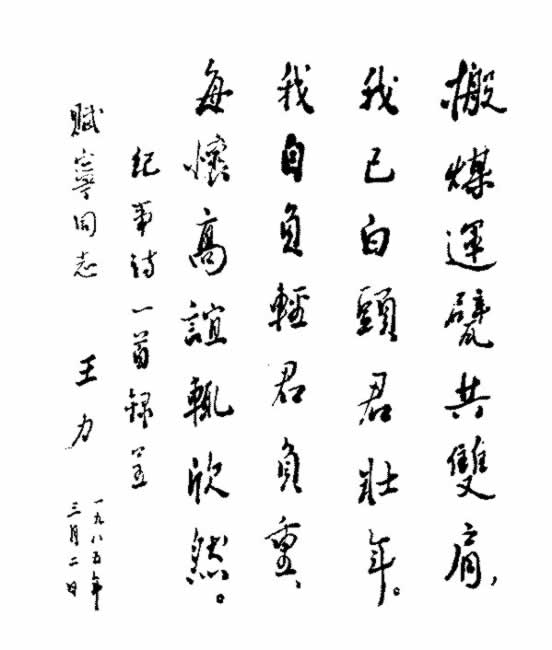 搬煤運甓共雙肩，
我已白頭君壯年。
我自負輕君負重、
每懷高誼輒欣然。
紀事诗一首録呈
赋寧同志
王力
一九八五年
三月二日